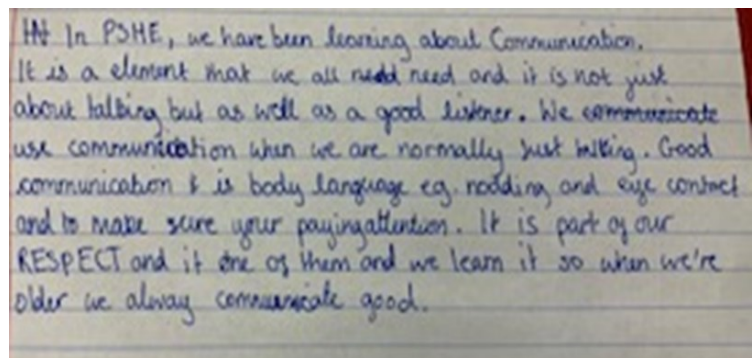 In PSHE, we have been learning about Communication.
It is a element that we all need and it is not just
about talking but as well as a good listener. We communicate
use communication when we are normally just talking. Good
communication is body language eg. nodding and eye contact
and to make sure your paying attention. It is part of our
RESPECT and it one of them and we learn it so when we're
older we alway communicate good.